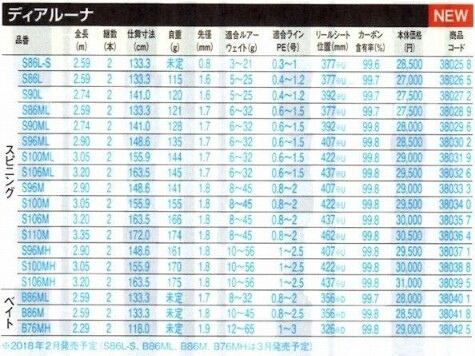 ディアルーナ NEW
品番 全長(m) 継数(本) 仕舞寸法(cm) 自重(g) 先径(mm) 適合ルアーウェイト(g) 適合ラインPE(号) リールシート位置(mm) カーボン含有率(%) 本体価格(円) 商品コード
スピニング
S86L-S 2.59 2 133.3 未定 0.8 3~21 0.3~1 377 99.6 28,500 38025 8
S86L 2.59 2 133.3 115 1.6 5~32 0.4~1.2 377 99.6 27,000 38026 5
S90L 2.74 2 141.0 120 1.6 5~32 0.4~1.2 392 99.7 27,500 38027 2
S86ML 2.59 2 133.3 121 1.7 6~32 0.6~1.5 377 99.7 27,500 38028 9
S90ML 2.74 2 141.0 128 1.7 6~32 0.6~1.5 392 99.8 28,000 38029 6
S96ML 2.90 2 148.6 135 1.7 6~32 0.6~1.5 407 99.8 28,500 38030 2
S100ML 3.05 2 155.9 144 1.7 6~32 0.6~1.5 422 99.8 29,000 38031 9
S106ML 3.20 2 163.5 145 1.7 6~32 0.6~1.5 437 99.8 29,500 38032 6
S96M 2.90 2 148.6 141 1.8 8~45 0.8~2 407 99.8 29,000 38033 3
S100M 3.05 2 155.9 155 1.8 8~45 0.8~2 422 99.8 29,500 38034 0
S106M 3.20 2 163.5 166 1.8 8~45 0.8~2 437 99.8 30,000 38035 7
S110M 3.35 2 172.0 174 1.8 8~45 0.8~2 462 99.8 30,500 38036 4
S96MH 2.90 2 148.6 161 1.8 10~56 1~2.5 407 99.8 29,500 38037 1
S100MH 3.05 2 155.9 170 1.8 10~56 1~2.5 422 99.8 30,000 38038 8
S106MH 3.20 2 163.5 175 1.8 10~56 1~2.5 437 99.8 30,500 38039 5
ベイト
B86ML 2.59 2 133.3 未定 1.7 8~32 0.8~2 356 99.7 28,000 38040 1
B86M 2.59 2 133.3 未定 1.8 10~45 0.8~2 356 99.7 28,500 38041 8
B76MH 2.29 2 118.0 未定 1.9 12~65 1~3 326 99.5 29,000 38042 5
※2018年2月発売予定(S86L-S、B86ML、B86M、B76MHは3月発売予定)